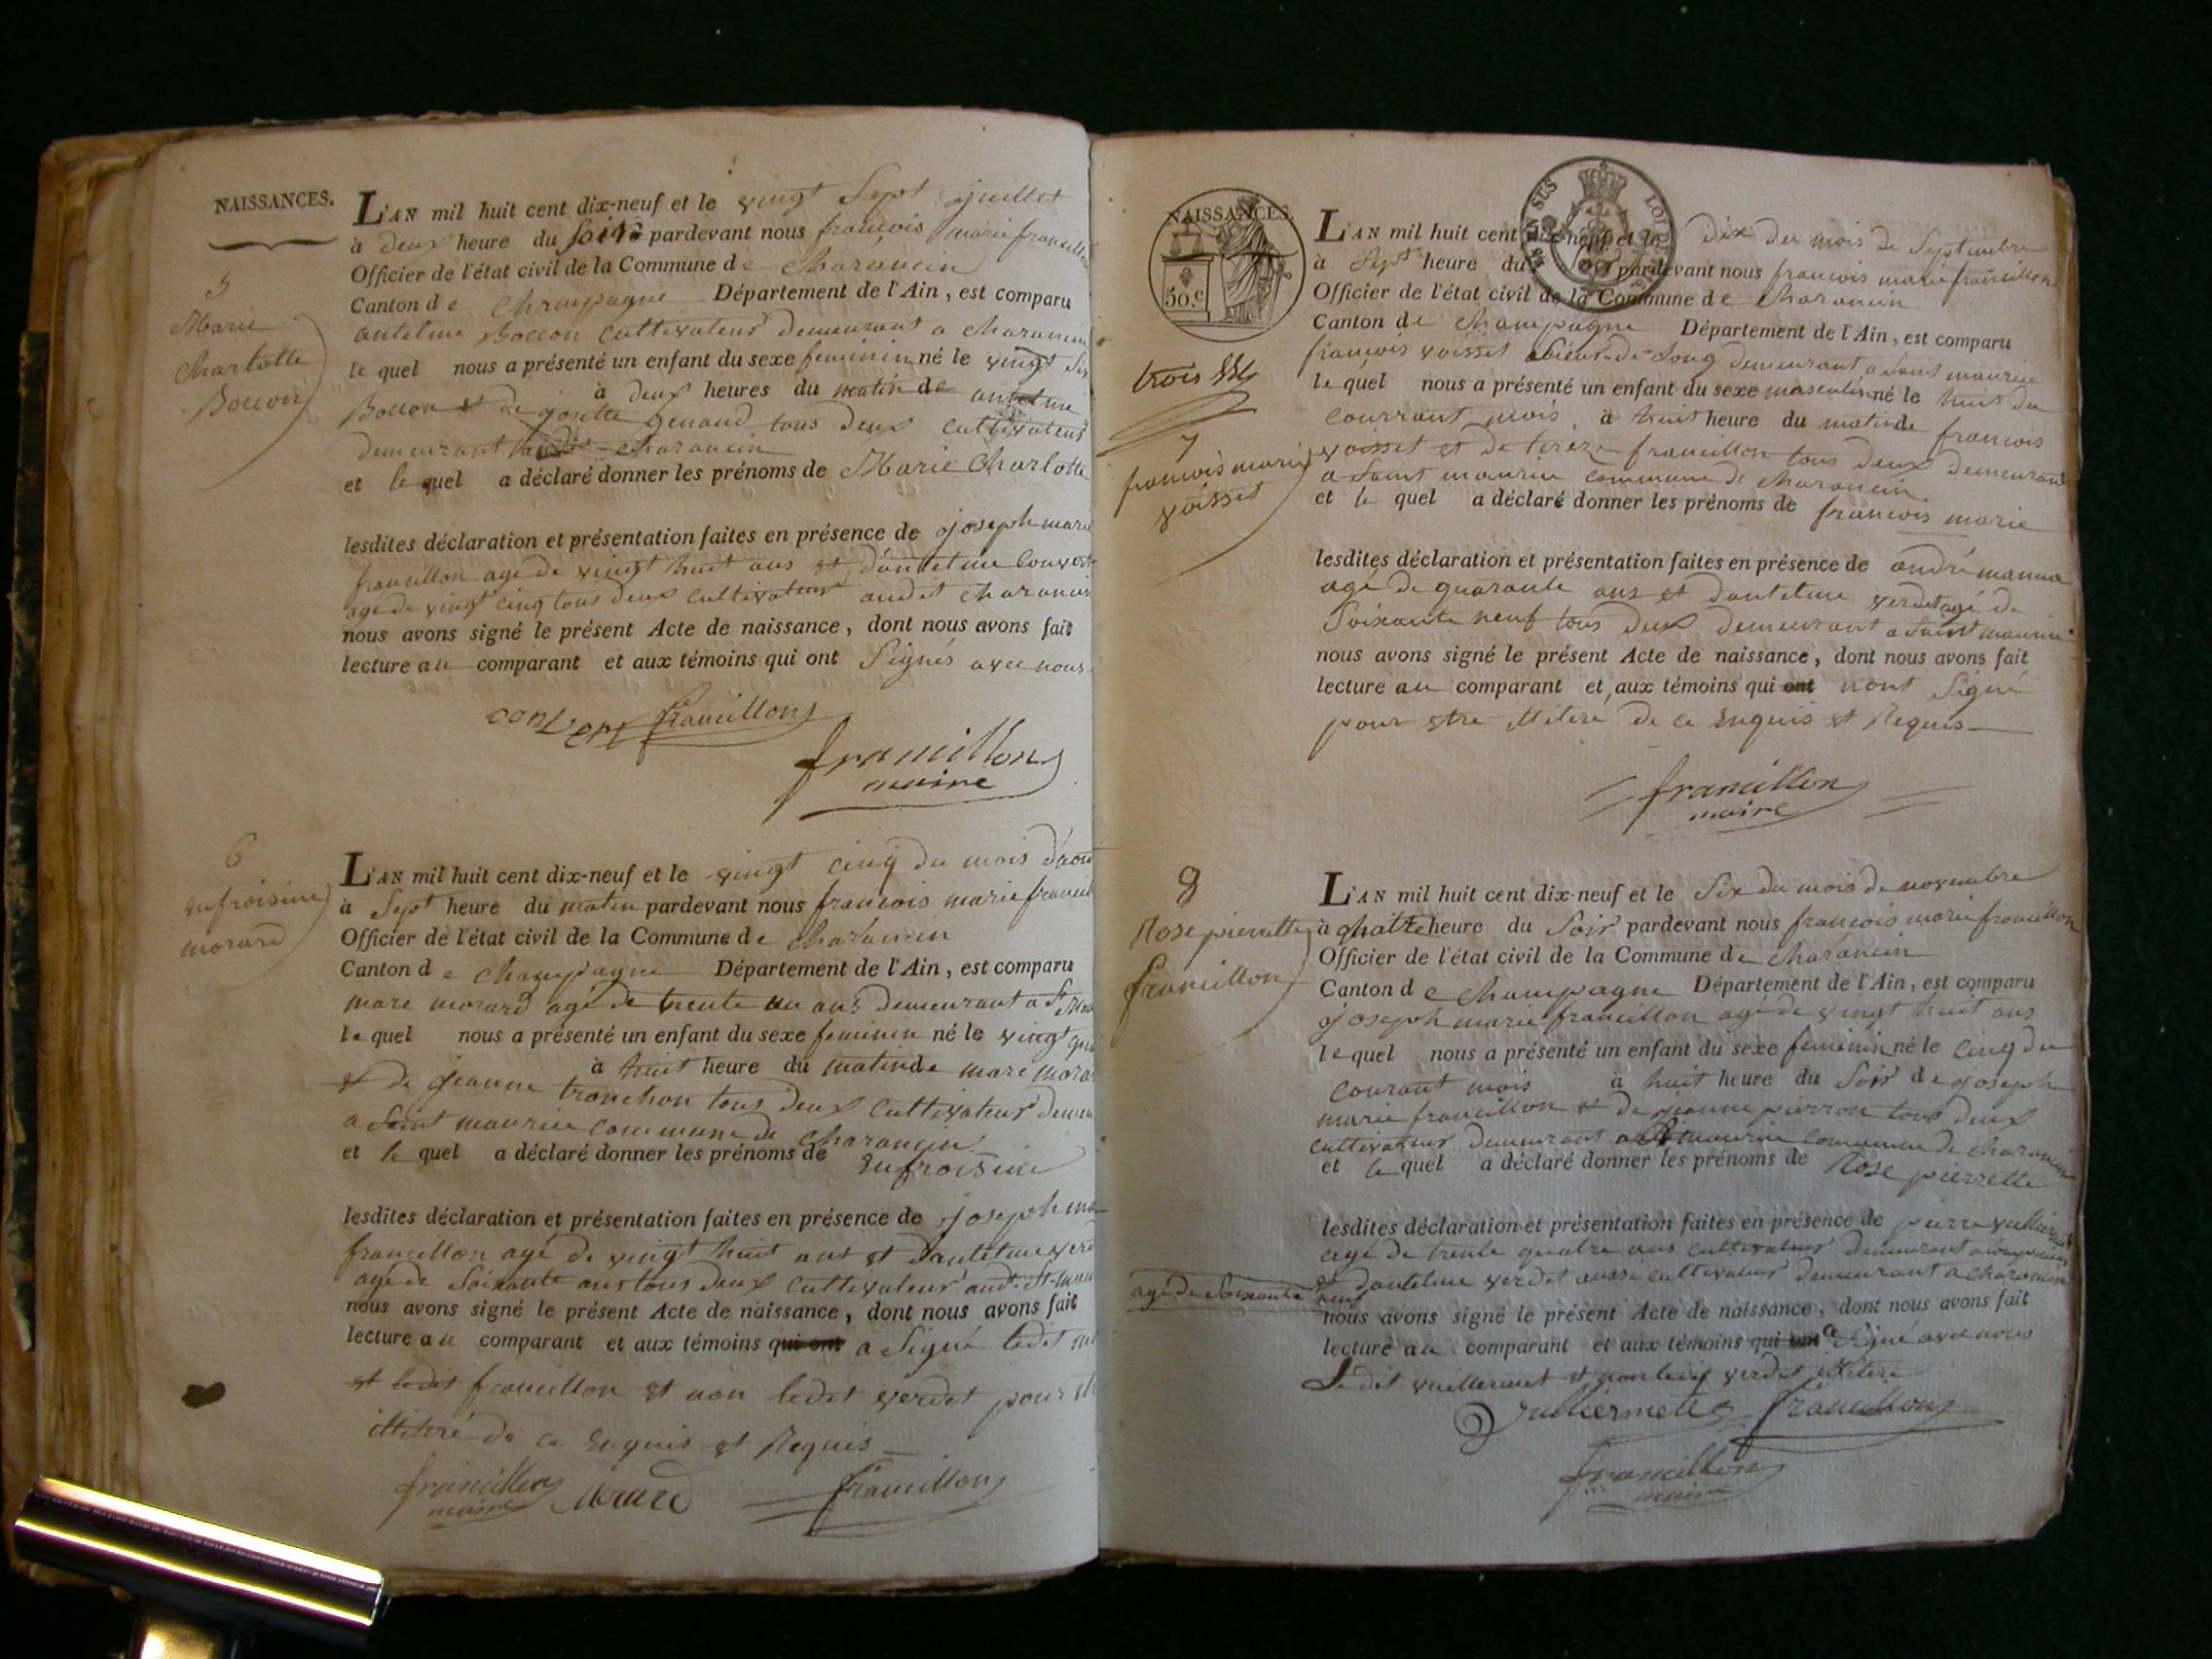 NAISSANCES.
L'AN mil huit cent dix-neuf et le vingt Sept juillet
à deux heure du soir pardevant nous francois marie francillon
Officier de l'état civil de la Commune de charancin
Canton de Champagne Département de l'Ain, est comparu
5
Marie
Charlotte
Boccon
antelme Boccon cultivateur demeurant a charancin
le quel nous a présenté un enfant du sexe feminin né le vingt Six
à deux heures du matin de antelme
Boccon et de josette genaud tous deux cultivateur
demeurant charancin
et le quel a déclaré donner les prénoms de Marie Charlotte
lesdites déclaration et présentation faites en présence de joseph marie
francillon age de vingt huit ans et dantelme Convert
agé de vingt cinq tous deux cultivateur audit charancin
nous avons signé le présent Acte de naissance, dont nous avons fait
lecture au comparant et aux témoins qui ont Signés avec nous
convert francillon
francillon
maire
6
eufroisine
morard
L'AN mil huit cent dix-neuf et le vingt cinq du mois daou
à Sept heure du matin pardevant nous francois marie francil
Officier de l'état civil de la Commune de charancin
Canton de Champagne Département de l'Ain, est comparu
marc morard agé de trente un ans demeurant a St
le quel nous a présenté un enfant du sexe feminin né le vingt
à huit heure du matin de marc morar
et de jeanne tronchon tous deux cultivateur demeu
a Saint maurice commune de charancin
et le quel a déclaré donner les prénoms de eufroisine
lesdites déclaration et présentation faites en présence de joseph ma
francillon agé de vingt huit ans et dantelme verd
agé de Soixante ans tous deux cultivateur aud. St-mau
nous avons signé le présent Acte de naissance, dont nous avons fait
lecture au comparant et aux témoins qui ont a Signé ledit
et ledit francillon et non ledit verdet pour
illiteré de ce Enquis et Requis
francillon Morard francillon
maire
NAISSANCES.
50.c
EN SUS
LOI
L'AN mil huit cent dix-neuf et le dix du mois de Septembre
à Sept heure du pardevant nous francois marie francillon
Officier de l'état civil de la Commune de charancin
Canton de Champagne Département de l'Ain, est comparu
trois
7
francois marie
voisset
francois voisset Sieur-de-Long demeurant a Saint maurice
le quel nous a présenté un enfant du sexe masculin né le huit du
courrant mois à huit heure du matin de francois
voisset et de tereze francillon tous deux demeurant
a Saint maurice commune de charancin.
et le quel a déclaré donner les prénoms de francois marie
lesdites déclaration et présentation faites en présence de andré
agé de quarante ans et dantelme verdet agé de
Soixante neuf tous deux demeurant a Saint maurice
nous avons signé le présent Acte de naissance, dont nous avons fait
lecture au comparant et aux témoins qui ont nont Signé
pour etre illiteré de ce Enquis et Requis
francillon
maire
8
Rose pierrette
francillon
L'AN mil huit cent dix-neuf et le Six du mois de novembre
à quatre heure du Soir pardevant nous francois marie francillon
Officier de l'état civil de la Commune de charancin
Canton de Champagne Département de l'Ain, est comparu
joseph marie francillon agé de vingt huit ans
le quel nous a présenté un enfant du sexe feminin né le cinq du
courant mois à huit heure du Soir de joseph
marie francillon et de jeanne pierron tous deux
cultivateur demeurant a St maurice commune de charancin
et le quel a déclaré donner les prénoms de Rose pierrette
lesdites déclaration et présentation faites en présence de pierre vuillermet
agé de trente quatre ans cultivateur demeurant a
agé de Soixante neuf
et dantelme verdet aussi cultivateur demeurant a charancin
nous avons signé le présent Acte de naissance, dont nous avons fait
lecture au comparant et aux témoins qui ont a Signé avec nous
Le dit vuillermet et non ledit verdet illiteré
vuillermet francillon
francillon
maire